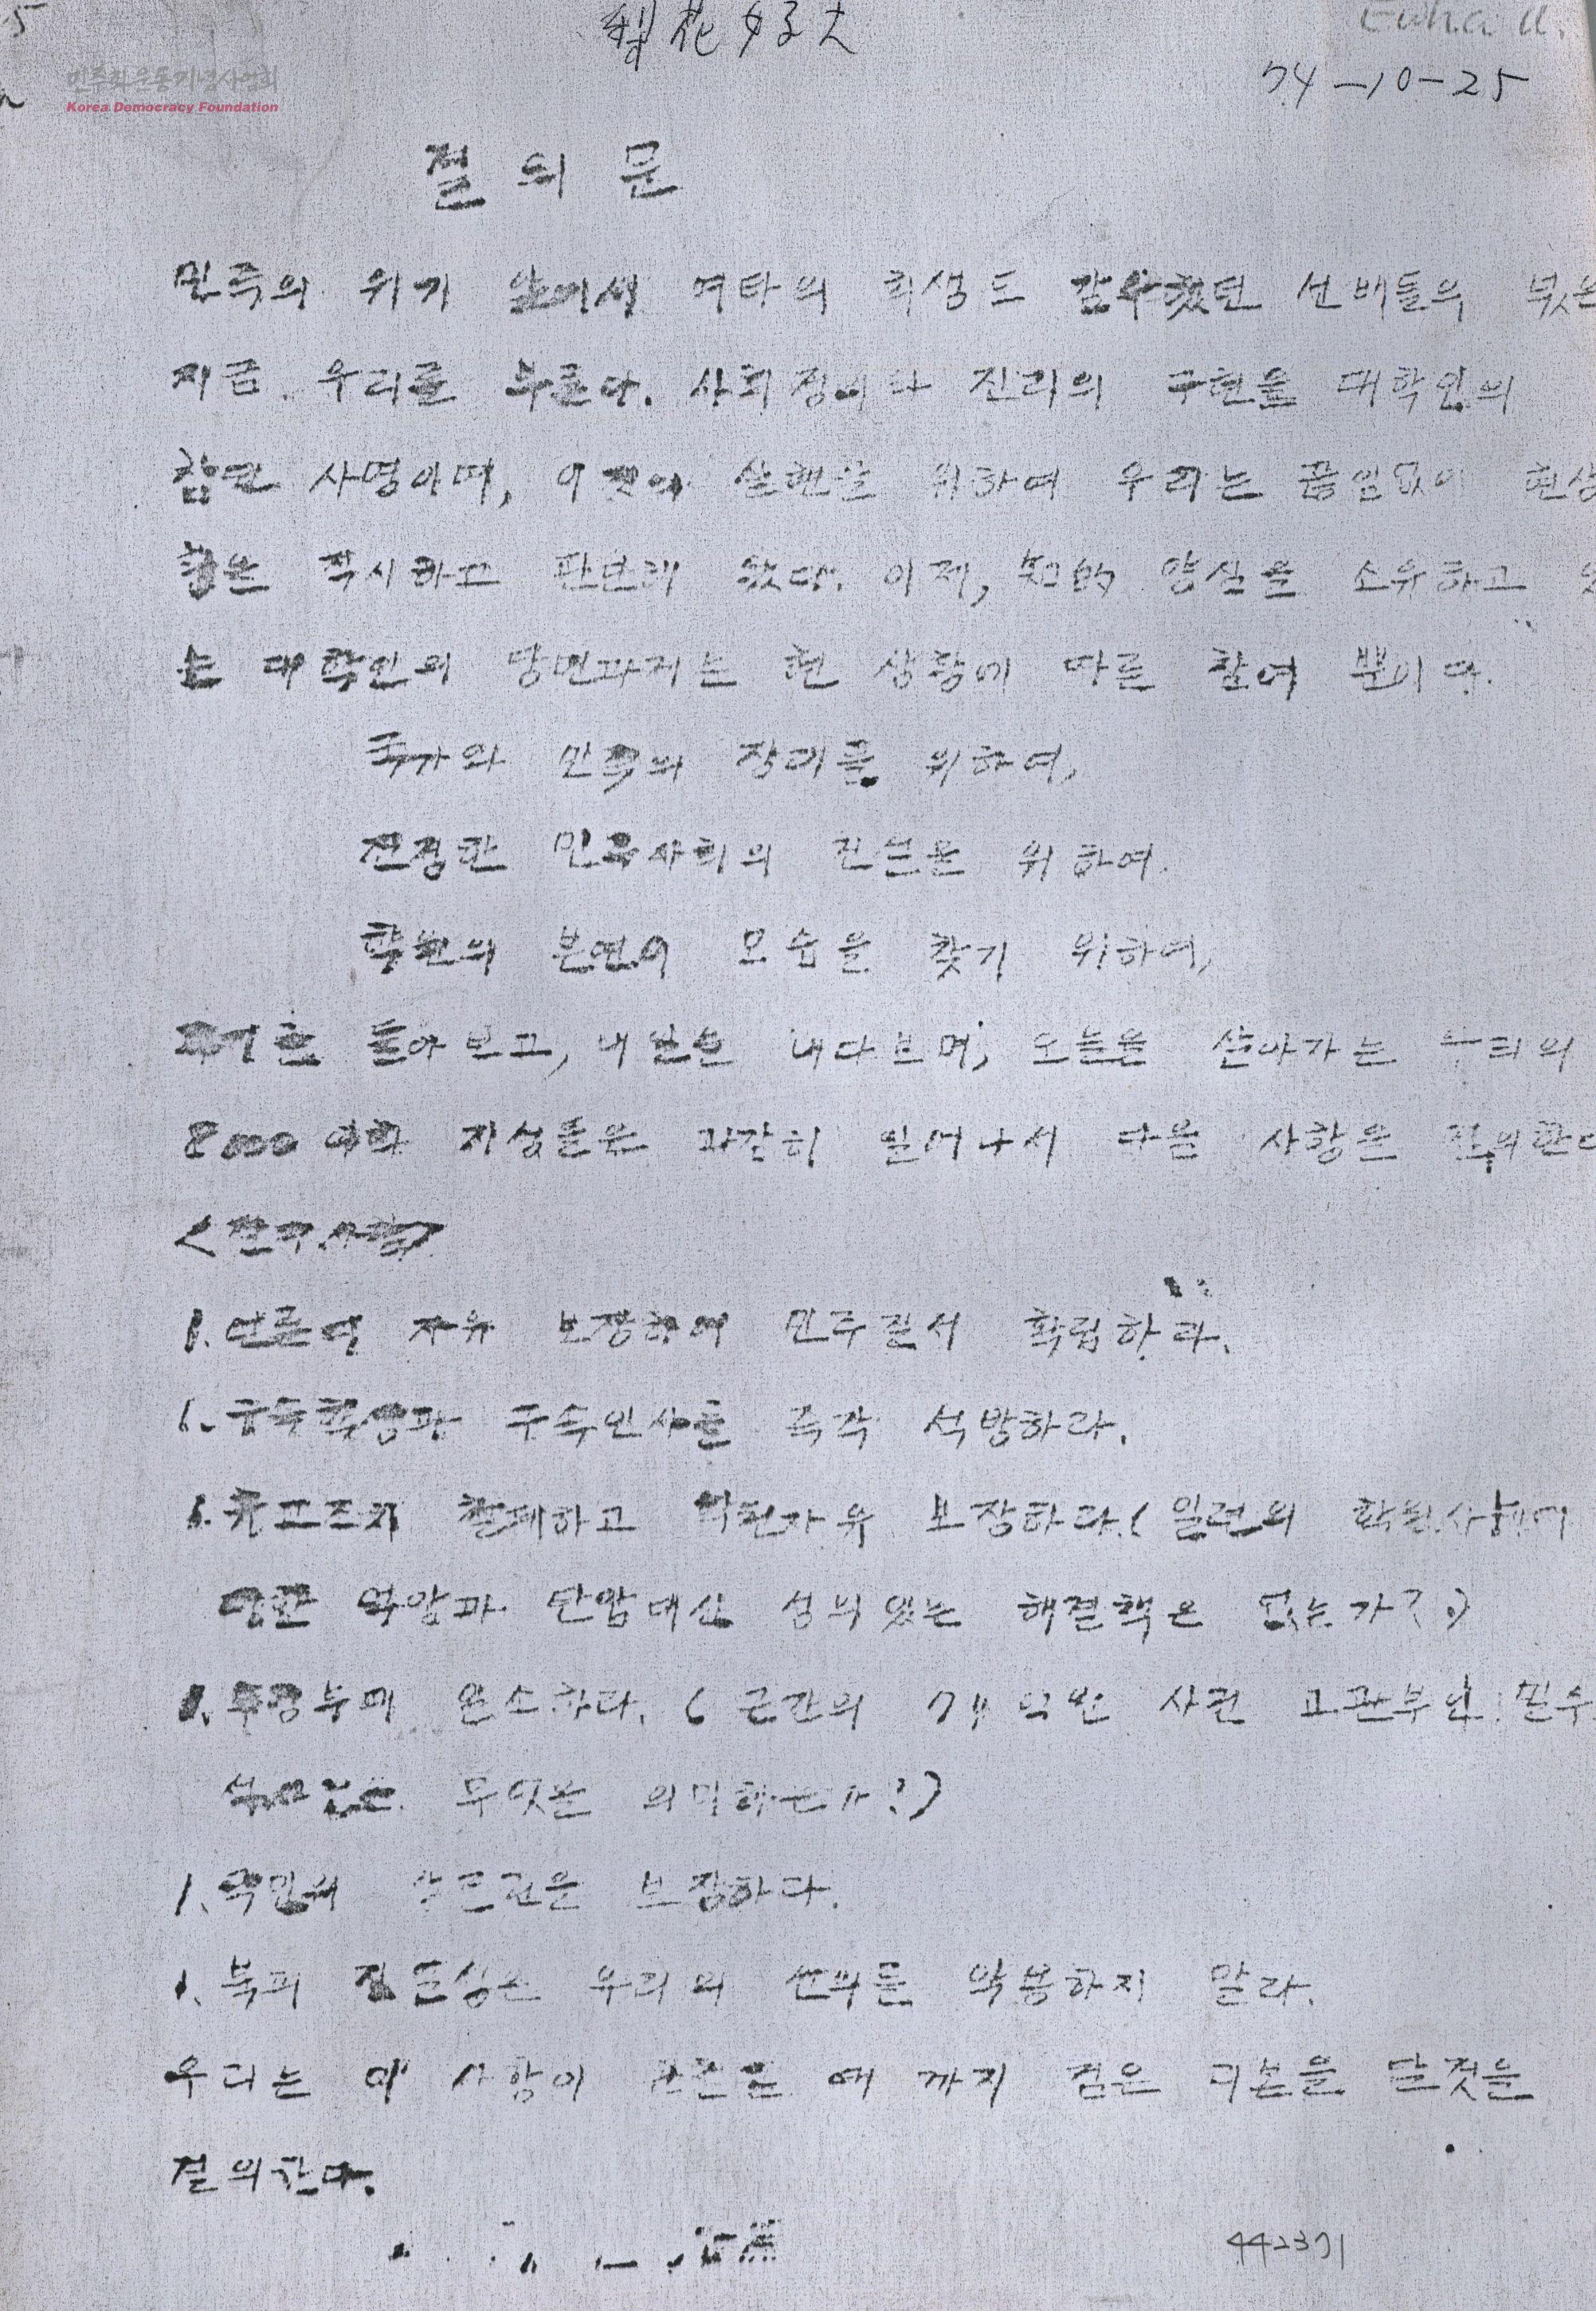 梨花女大
Ewha U.
74-10-25
민주화운동기념사업회
Korea Democracy Foundation
결의문
민족의 위기 앞에서 여타의 희생도 감수했던 선배들의
지금 우리를 부른다. 사회정의나 진리의 구현을 대학인의
참된 사명이며, 이것의 실현을 위하여 우리는 끊임없이 현상
황을 직시하고 판단해 왔다. 이제, 知的 양심을 소유하고 있
는 대학인의 당면과제는 현 상황에 따른 참여 뿐이다.
국가와 민족의 장래를 위하여,
진정한 민주사회의 건설을 위하여.
학원의 본연의 모습을 찾기 위하여,
과거를 돌아보고, 내일을 내다보며, 오늘을 살아가는 우리의
8000 이화 지성들은 과감히 일어나서 다음 사항을 결의한다
<결의사항>
1. 언론의 자유 보장하여 민주질서 확립하라.
1. 구속학생과 구속인사를 즉각 석방하라.
1. 학원자유 보장하라. (일련의 학원사태에
당한 억압과 탄압대신 성의있는 해결책은 없는가?)
1. 부정부패 일소하라. (근간의 74억원 사건 고관부인 밀수
무엇을 의미하는가?)
1. 국민의 보장하라.
1. 북괴 김일성은 우리의 선의를 악용하지 말라.
우리는 이 사항이 때까지 검은 리본을 달것을
결의한다.
442371